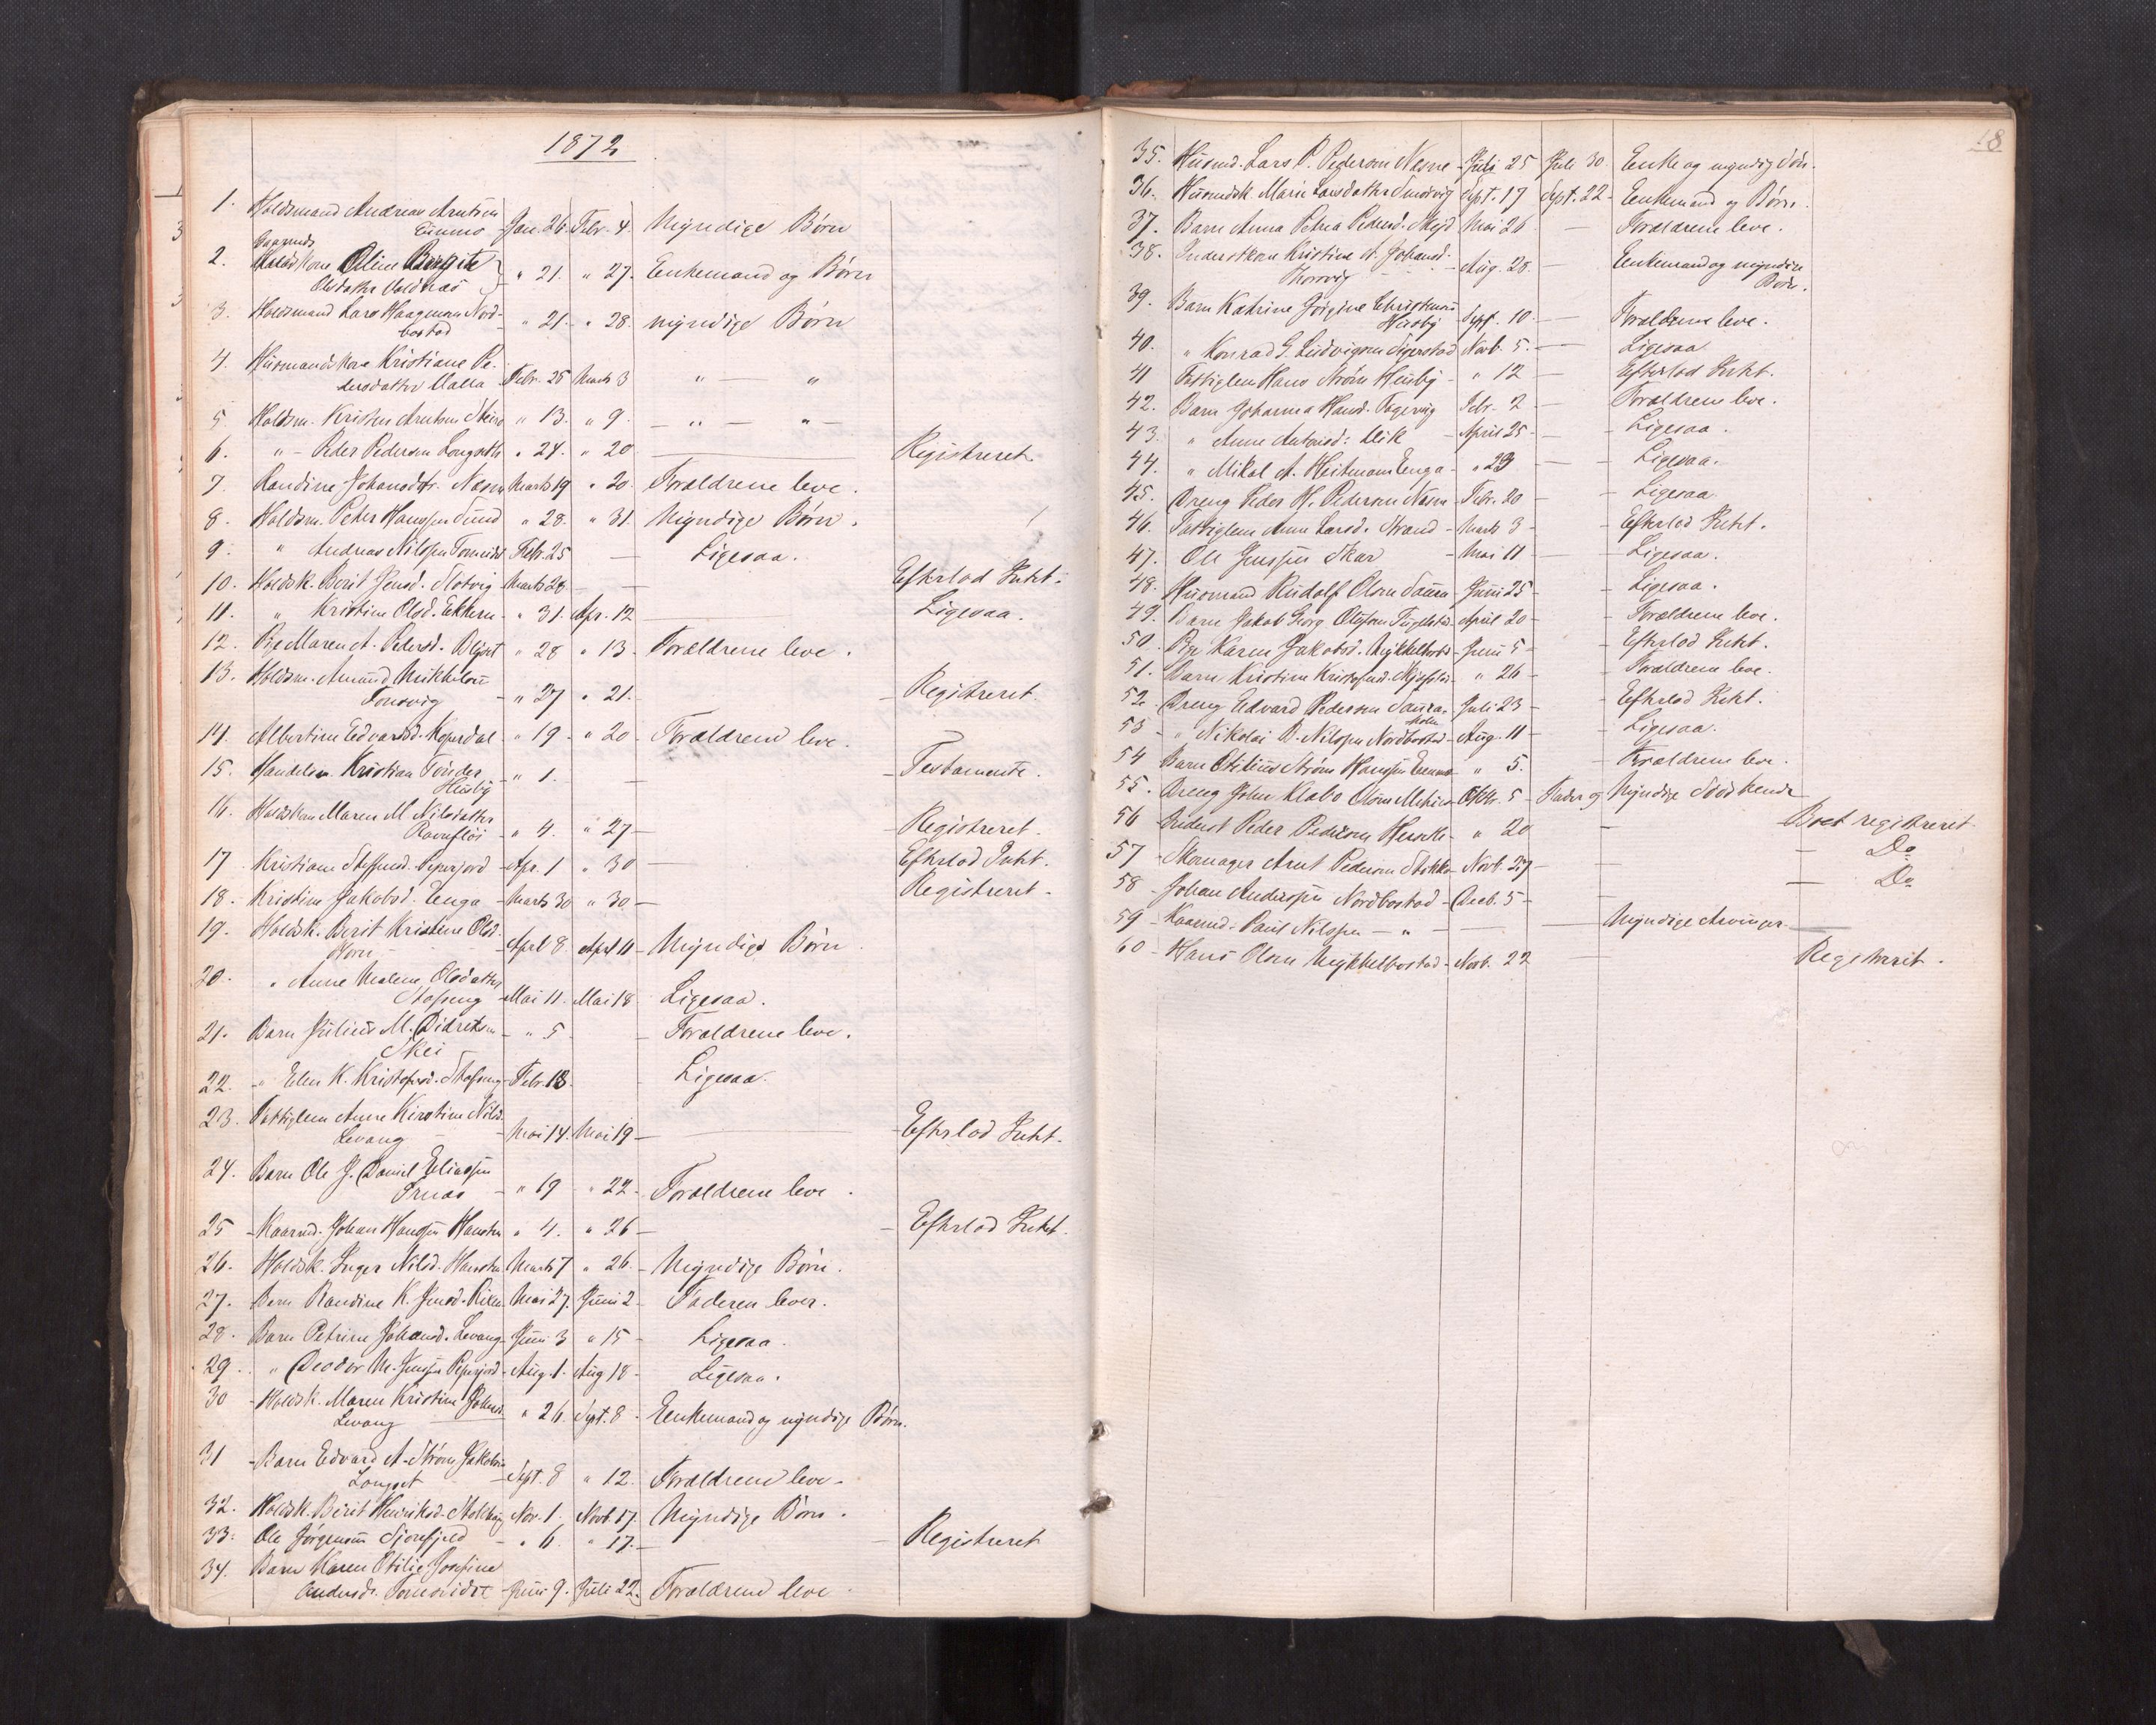 1872
1. Holdsmand Andreas Arntsen
Tømmo Jan. 26. Febr. 4. Myndige Børn
Gaarmds
2. Kone Oline Birgite
Olsdatter Valdnæs " 21. " 27. Enkemand og Børn
3. Holdsmand Lars Haagensen Nord-
bostad " 21. " 28. myndige Børn
4. Husmands Kone Kristiane Pe-
dersdatter Valla Febr. 25 Marts 3 " — "
5. Holdsm. Kristen Arntsen " 13. " 9. — " — " —
6. " - Peder Pedersen " 24. " 20 Registreret.
7. Randine Johansdtr. Næsne Marts 19 " 20. Forældrene leve.
8. Holdsm. Peter Hanssen Sund " 28. " 31. Myndige Børn.
9. " Andreas Nilssen Febr. 25 — Ligesaa.
10. Holdsk. Berit Jensd. Marts 28 — Efterlod Intet.
11. " Kristine Olsd. " 31. Apr. 12 Ligesaa.
12. Pige Maren A. Pedersd. " 28 " 13. Forældrene leve.
13. Holdsm. Amund Mikkelsen
" 27 " 21. Registreret.
14. Albertine Edvardsd. " 19 - " 20 - Forældrene leve.
15. Handelsm. Kristian Tønder
Husby " 1. — Testamente.
16. Holdskone Maren M. Nilsdatter
Ravnfløi - " 4. " 27 — Registreret.
17 Kristiane Steffensd. - Apr. 1 " 30 — Efterlod Intet.
18. Kristine Jakobsd. Enga - Marts 30 " 30 — Registreret.
19. Holdsk. Berit Kristine Olsd.
Horn - April 8 April 11 - Myndige Børn.
20. " Anne Malene Olsdatter
- Mai 11. Mai 18 Ligesaa.
21. Barn Julius M. Didriksen
Skei - " 5 — Forældrene leve.
22. " Elen K. Kristofersd. - Febr. 13. Ligesaa.
23. Fattiglem Anne Kirstine Nilsd.
Levang - Mai 14. Mai 19 — Efterlod Intet.
24. Barn Ole J. Daniel Eliassen
- " 19 - " 22 - Forældrene leve.
25 - Kaarmd. Johan Hanssen " 4. " 26 — Efterlod Intet.
26. Holdsk. Inger Nilsd. Marts 7 " 26. - Myndige Børn.
27. Barn Randine K. Jensd. Mai 27. Juni 2 - Faderen lever.
28. Barn Petrine Johansd. Levang - Juni 3 " 15 - Ligesaa.
29. " Deodor M. Jenssen - Aug. 1. Aug 18 - Ligesaa.
30 - Holdsk. Maren Kristine Johnsd.
Levang " 26. Sept. 8 - Enkemand og myndige Børn.
31 - Barn Edvard A. Strøm Jakobsen
- Sept. 8 " 12. Forældrene leve.
32. Holdsk. Berit Henriksd. Nov. 1. Novb. 17. Myndige Børn.
33. Ole Jørgensen - " 6. " 17. — Registreret
34. Barn Karen Otilie Josefine
Andersd. - Juni 9. Juli 22. Forældrene leve.
18
35. Husmd. Lars P. Pedersen Næsne - Juli 25 Juli 30. Enke og myndig Søn.
36. Husmdsk. Marie Larsdatter Sept. 17 Sept. 22 - Enkemand og Børn.
37. Barn Anna Petrea Pedersd. Mai 26 — Forældrene leve.
38. Inderstkone Kristine A. Johansd.
- Aug. 28. — Enkemand og myndige
Børn.
39. Barn Katrine Jørgine Kristensen
Husby - Sept. 10. — Forældrene leve.
40. " Konrad G. Ludvigsen Novb. 5. — Ligesaa
41 Fattiglem Hans Strøm Husby - " 12 — Efterlod Intet.
42. Barn Johanna Hansd. Fagervig Febr. 2 - Forældrene leve.
43. " Anne Antonsd: - April 25 - - Ligesaa.
44. " Mikal A. Heitmann Enga - " 29 — - Ligesaa.
45. Dreng Peder H. Pedersen Næsne - Febr. 20 - Ligesaa
46. Fattiglem Anne Larsd. Strand - Marts 3 - - Efterlod Intet.
47. Ole Jenssen Skar - Mai 11 — - Ligesaa.
48. Husmand Rudolf Olsen Saura - Juni 25 - - Ligesaa.
49. Barn Jakob Georg Olufsen April 20 - - Forældrene leve.
50. Pige Karen Jakobsd. Mykkelbostad - Juni 5 - - Efterlod Intet.
51. Barn Kristine Kristofersd. " 26 - - Forældrene leve.
52 Dreng Edvard Pedersen Saura-
holm Juli 23 - - Efterlod Intet.
53 - " Nikolai B. Nilssen Nordbostad - Aug. 11 - - Ligesaa.
54 Barn Otilius Strøm Hanssen " 5. - Forældrene leve.
55. Dreng John Klabo Olsen Oktbr. 5 - Fader og Myndige Sødskende
56 - Inderst Peder Pedersen - " 20 — Boet registreret.
57 - Skomager Arnt Pedersen Novb. 27 — — Do
58 - Johan Anderssen Nordbostad - Decb. 5 - — Do
59 - Kaarmd. Paul Nilssen - " - — — Myndige Arvinger
60 - Hans Olsen Mykkelbostad - Novb. 22 — Registrerit.